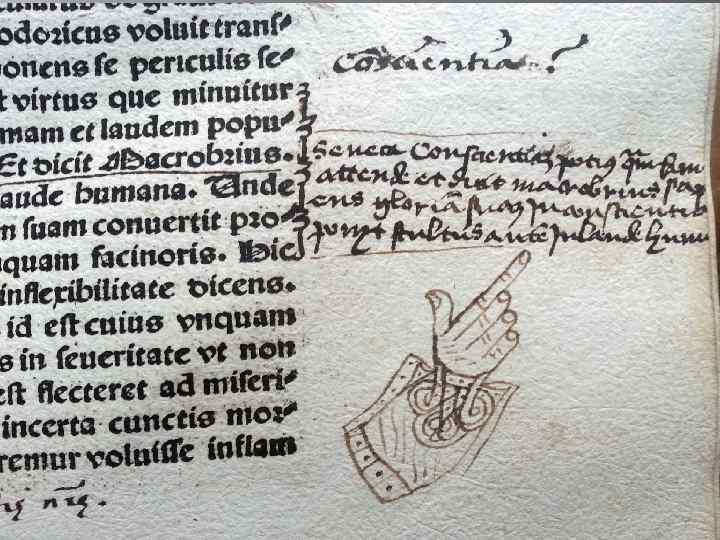 odoricus voluit transſ⸗
onens ſe periculis ſe⸗
t virtus que minuitur
mam et laudem popu⸗
Et dicit Macrobrius.
aude humana. Unde
n ſuam conuertit pro⸗
quam facinoris. Hic
inflexibilitate dicens.
id eſt cuius vnquam
s in ſeueritate vt non
eſt flecteret ad miſeri⸗
incerta cunctis mor⸗
remur voluiſſe inflam
Conſcientia
Seneca Conſcientiā potiꝰ qͣm fam
attende et dicit macrobrius ſapi
ens gloriā ſuaꝫ in conſcientia
ponit ſtultus autē in laude hum